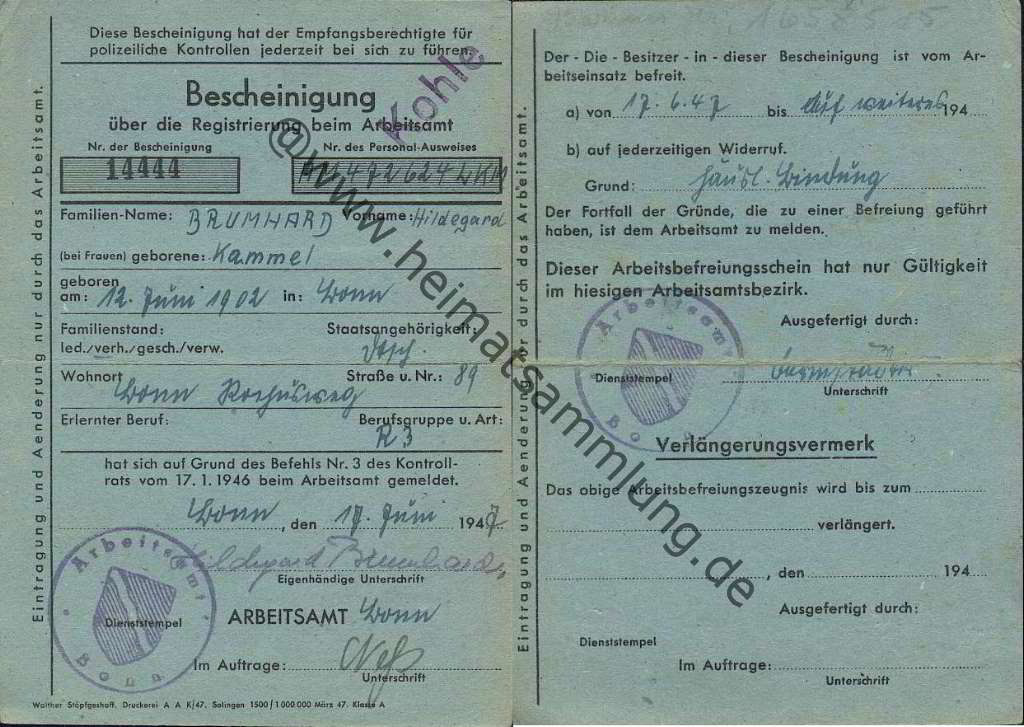 Diese Bescheinigung hat der Empfangsberechtigte für
polizeiliche Kontrollen jederzeit bei sich zu führen.
Kohle
Bescheinigung
über die Registrierung beim Arbeitsamt
Nr. der Bescheinigung Nr. des Personal-Ausweises
14444
Familien-Name: BRUMHARD Vorname: Hildegard
(bei Frauen) geborene: Kammel
geboren
am: 12. Juni 1902 in: Bonn
Familienstand: Staatsangehörigkeit:
led./verh./gesch./verw. dtsch.
Wohnort Straße u. Nr.: 89
Bonn Rochusweg
Erlernter Beruf: Berufsgruppe u. Art:
R3
hat sich auf Grund des Befehls Nr. 3 des Kontroll-
rats vom 17. 1. 1946 beim Arbeitsamt gemeldet.
Bonn, den 17. Juni 1947
Hildegard Brumhard
Eigenhändige Unterschrift
Arbeitsamt
Bonn
Dienststempel
ARBEITSAMT Bonn
Im Auftrage:
Unterschrift
Walther Stöpfgeshoff. Druckerei A A K/47. Solingen 1500/1000000 März 47. Klasse A
Eintragung und Aenderung nur durch das Arbeitsamt.
Der - Die - Besitzer - in - dieser Bescheinigung ist vom Ar-
beitseinsatz befreit.
a) von 17.6.47 bis auf weiteres 194
b) auf jederzeitigen Widerruf.
Grund: häusl. Bindung
Der Fortfall der Gründe, die zu einer Befreiung geführt
haben, ist dem Arbeitsamt zu melden.
Dieser Arbeitsbefreiungsschein hat nur Gültigkeit
im hiesigen Arbeitsamtsbezirk.
Ausgefertigt durch:
Arbeitsamt
Bonn
Dienststempel
Unterschrift
Verlängerungsvermerk
Das obige Arbeitsbefreiungszeugnis wird bis zum
verlängert.
, den 194
Ausgefertigt durch:
Dienststempel
Im Auftrage:
Unterschrift
Eintragung und Aenderung nur durch das Arbeitsamt.
@www.heimatsammlung.de